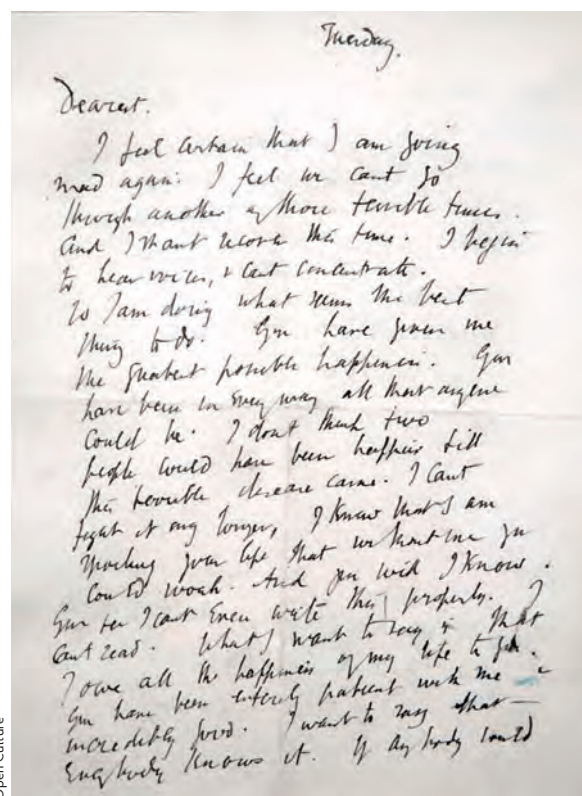 Tuesday.
Dearest.
I feel certain that I am going
mad again: I feel we cant go
through another of those terrible times.
And I shant recover this time. I begin
to hear voices, & cant concentrate.
So I am doing what seems the best
thing to do. You have given me
the greatest possible happiness. You
have been in every way all that anyone
could be. I dont think two
people could have been happier till
this terrible disease came. I cant
fight it any longer, I know that I am
spoiling your life, that without me you
could work. And you will I know.
You see I cant even write this properly. I
cant read. What I want to say is that
I owe all the happiness of my life to you.
You have been entirely patient with me &
incredibly good. I want to say that —
everybody knows it. If anybody could
Open Culture